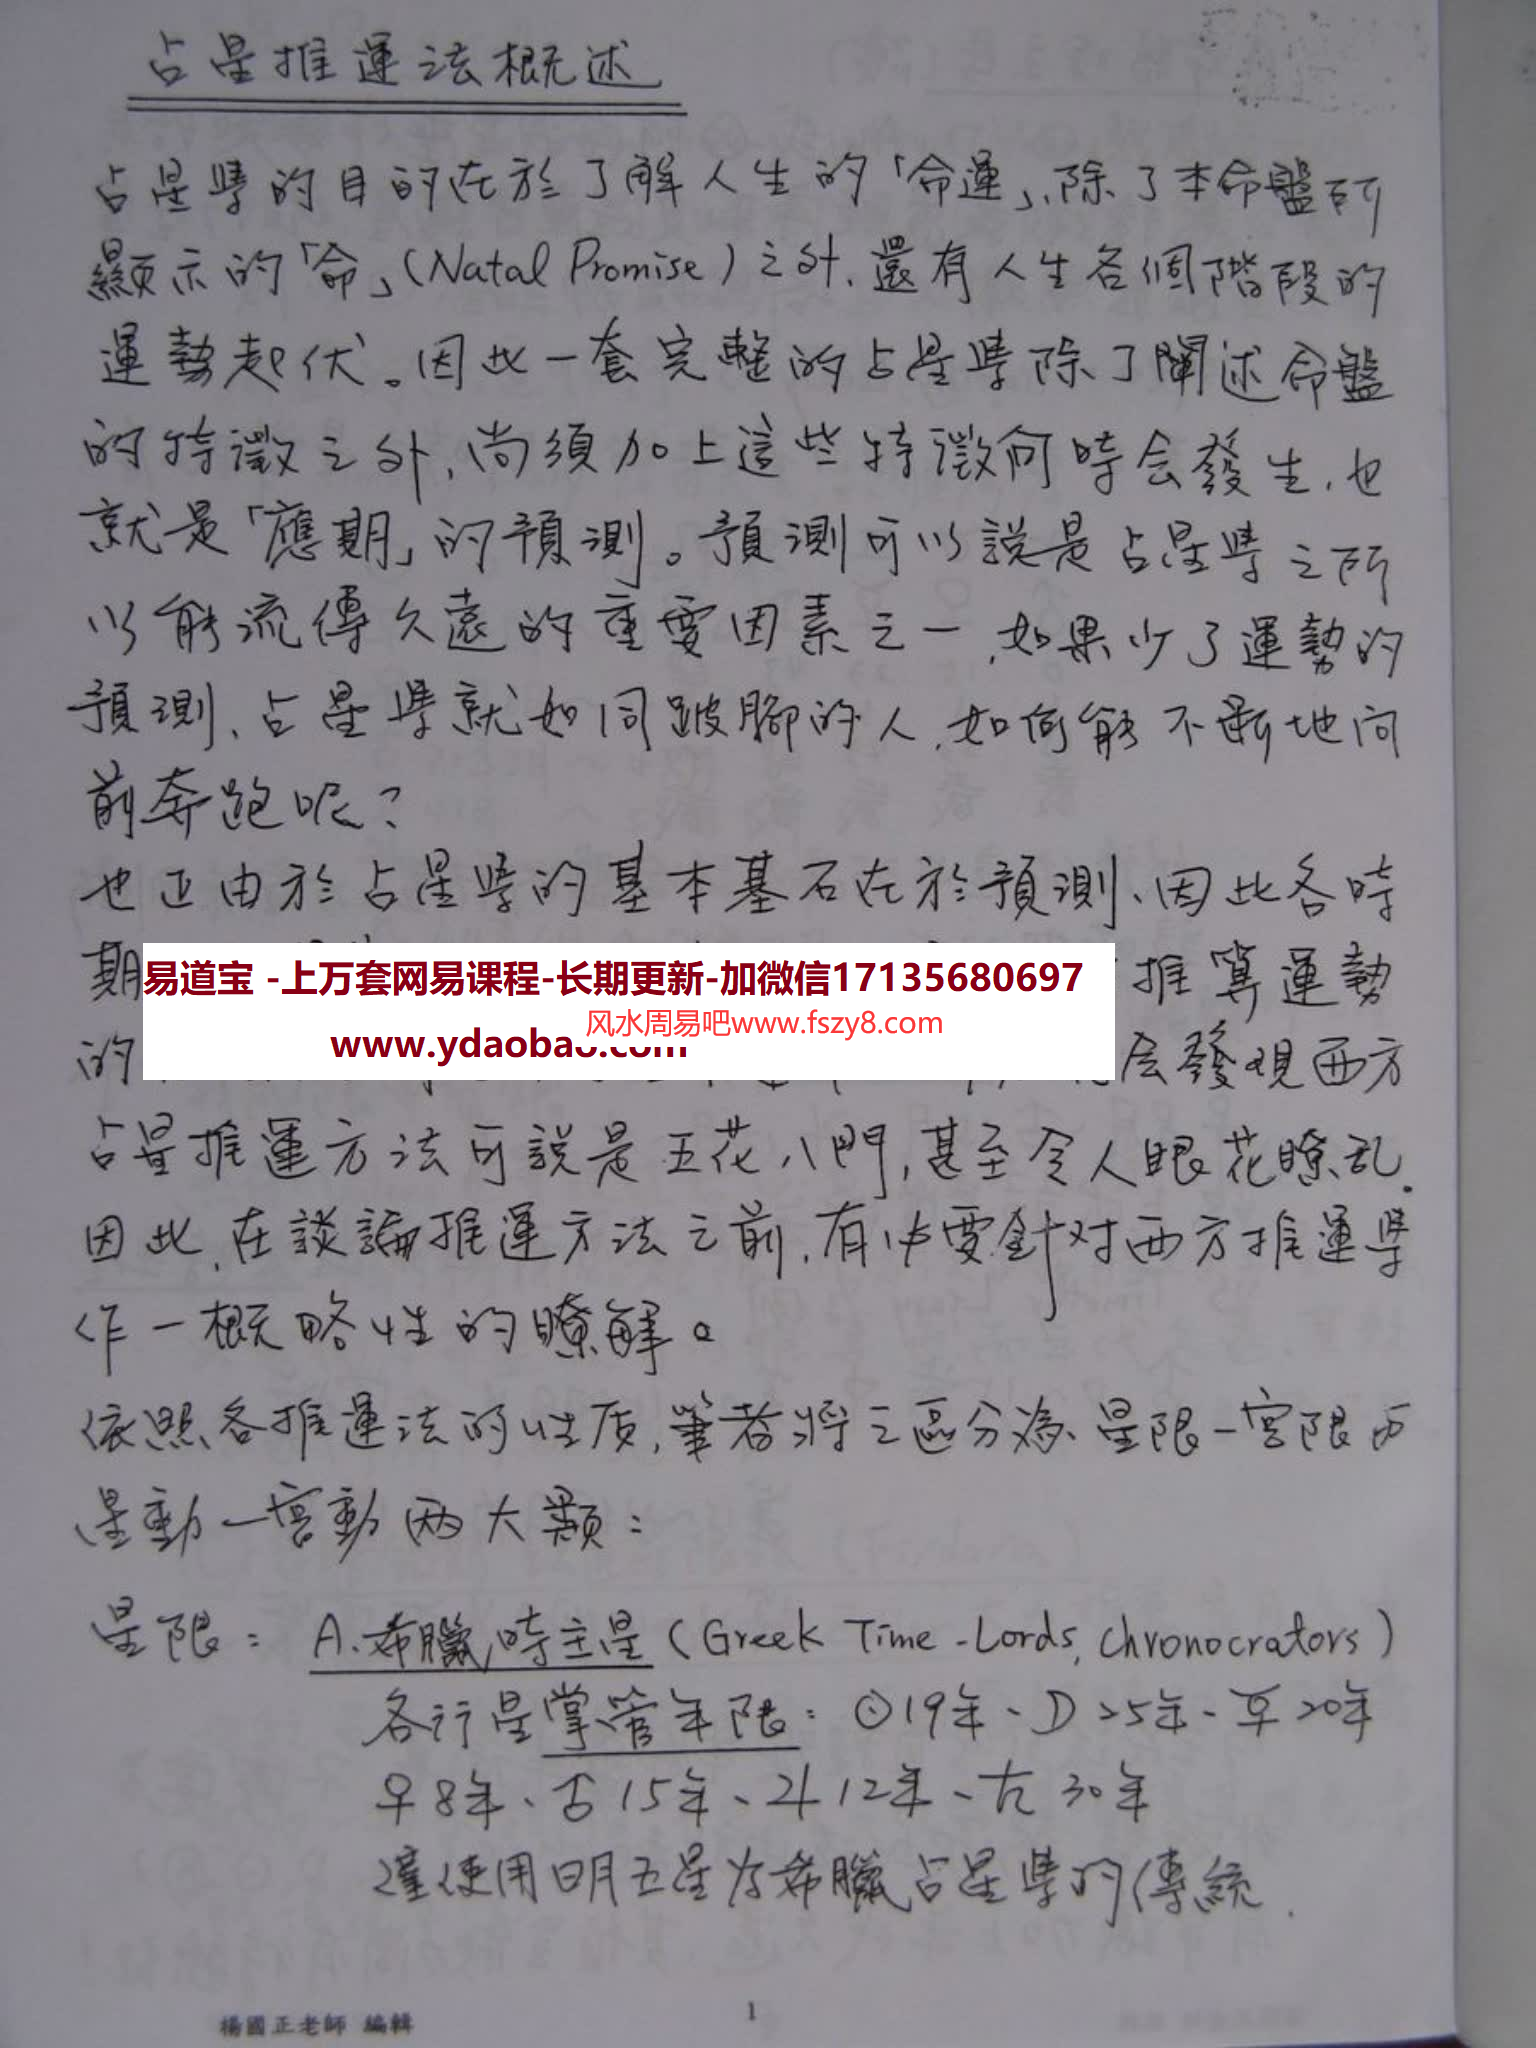 占星推運法概述
占星學的目的在於了解人生的「命運」、除了本命盤所
顯示的「命」(Natal Promise)之外、還有人生各個階段的
運勢起伏。因此一套完整的占星學除了闡述命盤
的特徵之外,尚須加上這些特徵何時会發生、也
就是「應期」的預測。預測可以說是占星學之所
以能流傳久遠的重要因素之一,如果少了運勢的
預測、占星學就如同跛腳的人,如何能不斷地向
前奔跑呢?
也正由於占星學的基本基石在於預測、因此各時
期 推算運勢
易道宝 -上万套网易课程-长期更新-加微信17135680697
风水周易吧www.fszy8.com
www.ydaobao.com
的 会發現西方
占星推運方法可說是五花八門,甚至令人眼花瞭乱.
因此,在談論推運方法之前,有必要針对西方推運學
作一概略性的瞭解。
依照各推運法的性质,筆者將之區分為、星限-宮限与
星動-宮動兩大類:
星限: A.希臘時主星(Greek Time-Lords, Chronocrators)
各行星掌管年限: ☉19年、☽25年、☿20年
♀8年、♂15年、♃12年、♄30年
僅使用日月五星为希臘占星學的傳統.
楊國正老師 編輯
1